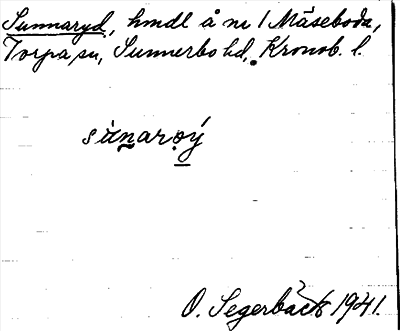 Sunnaryd, hmdl å nr 1 Måseboda,
Torpa sn, Sunnerbo hd, Kronob. l.
O. Segerbäck 1941.